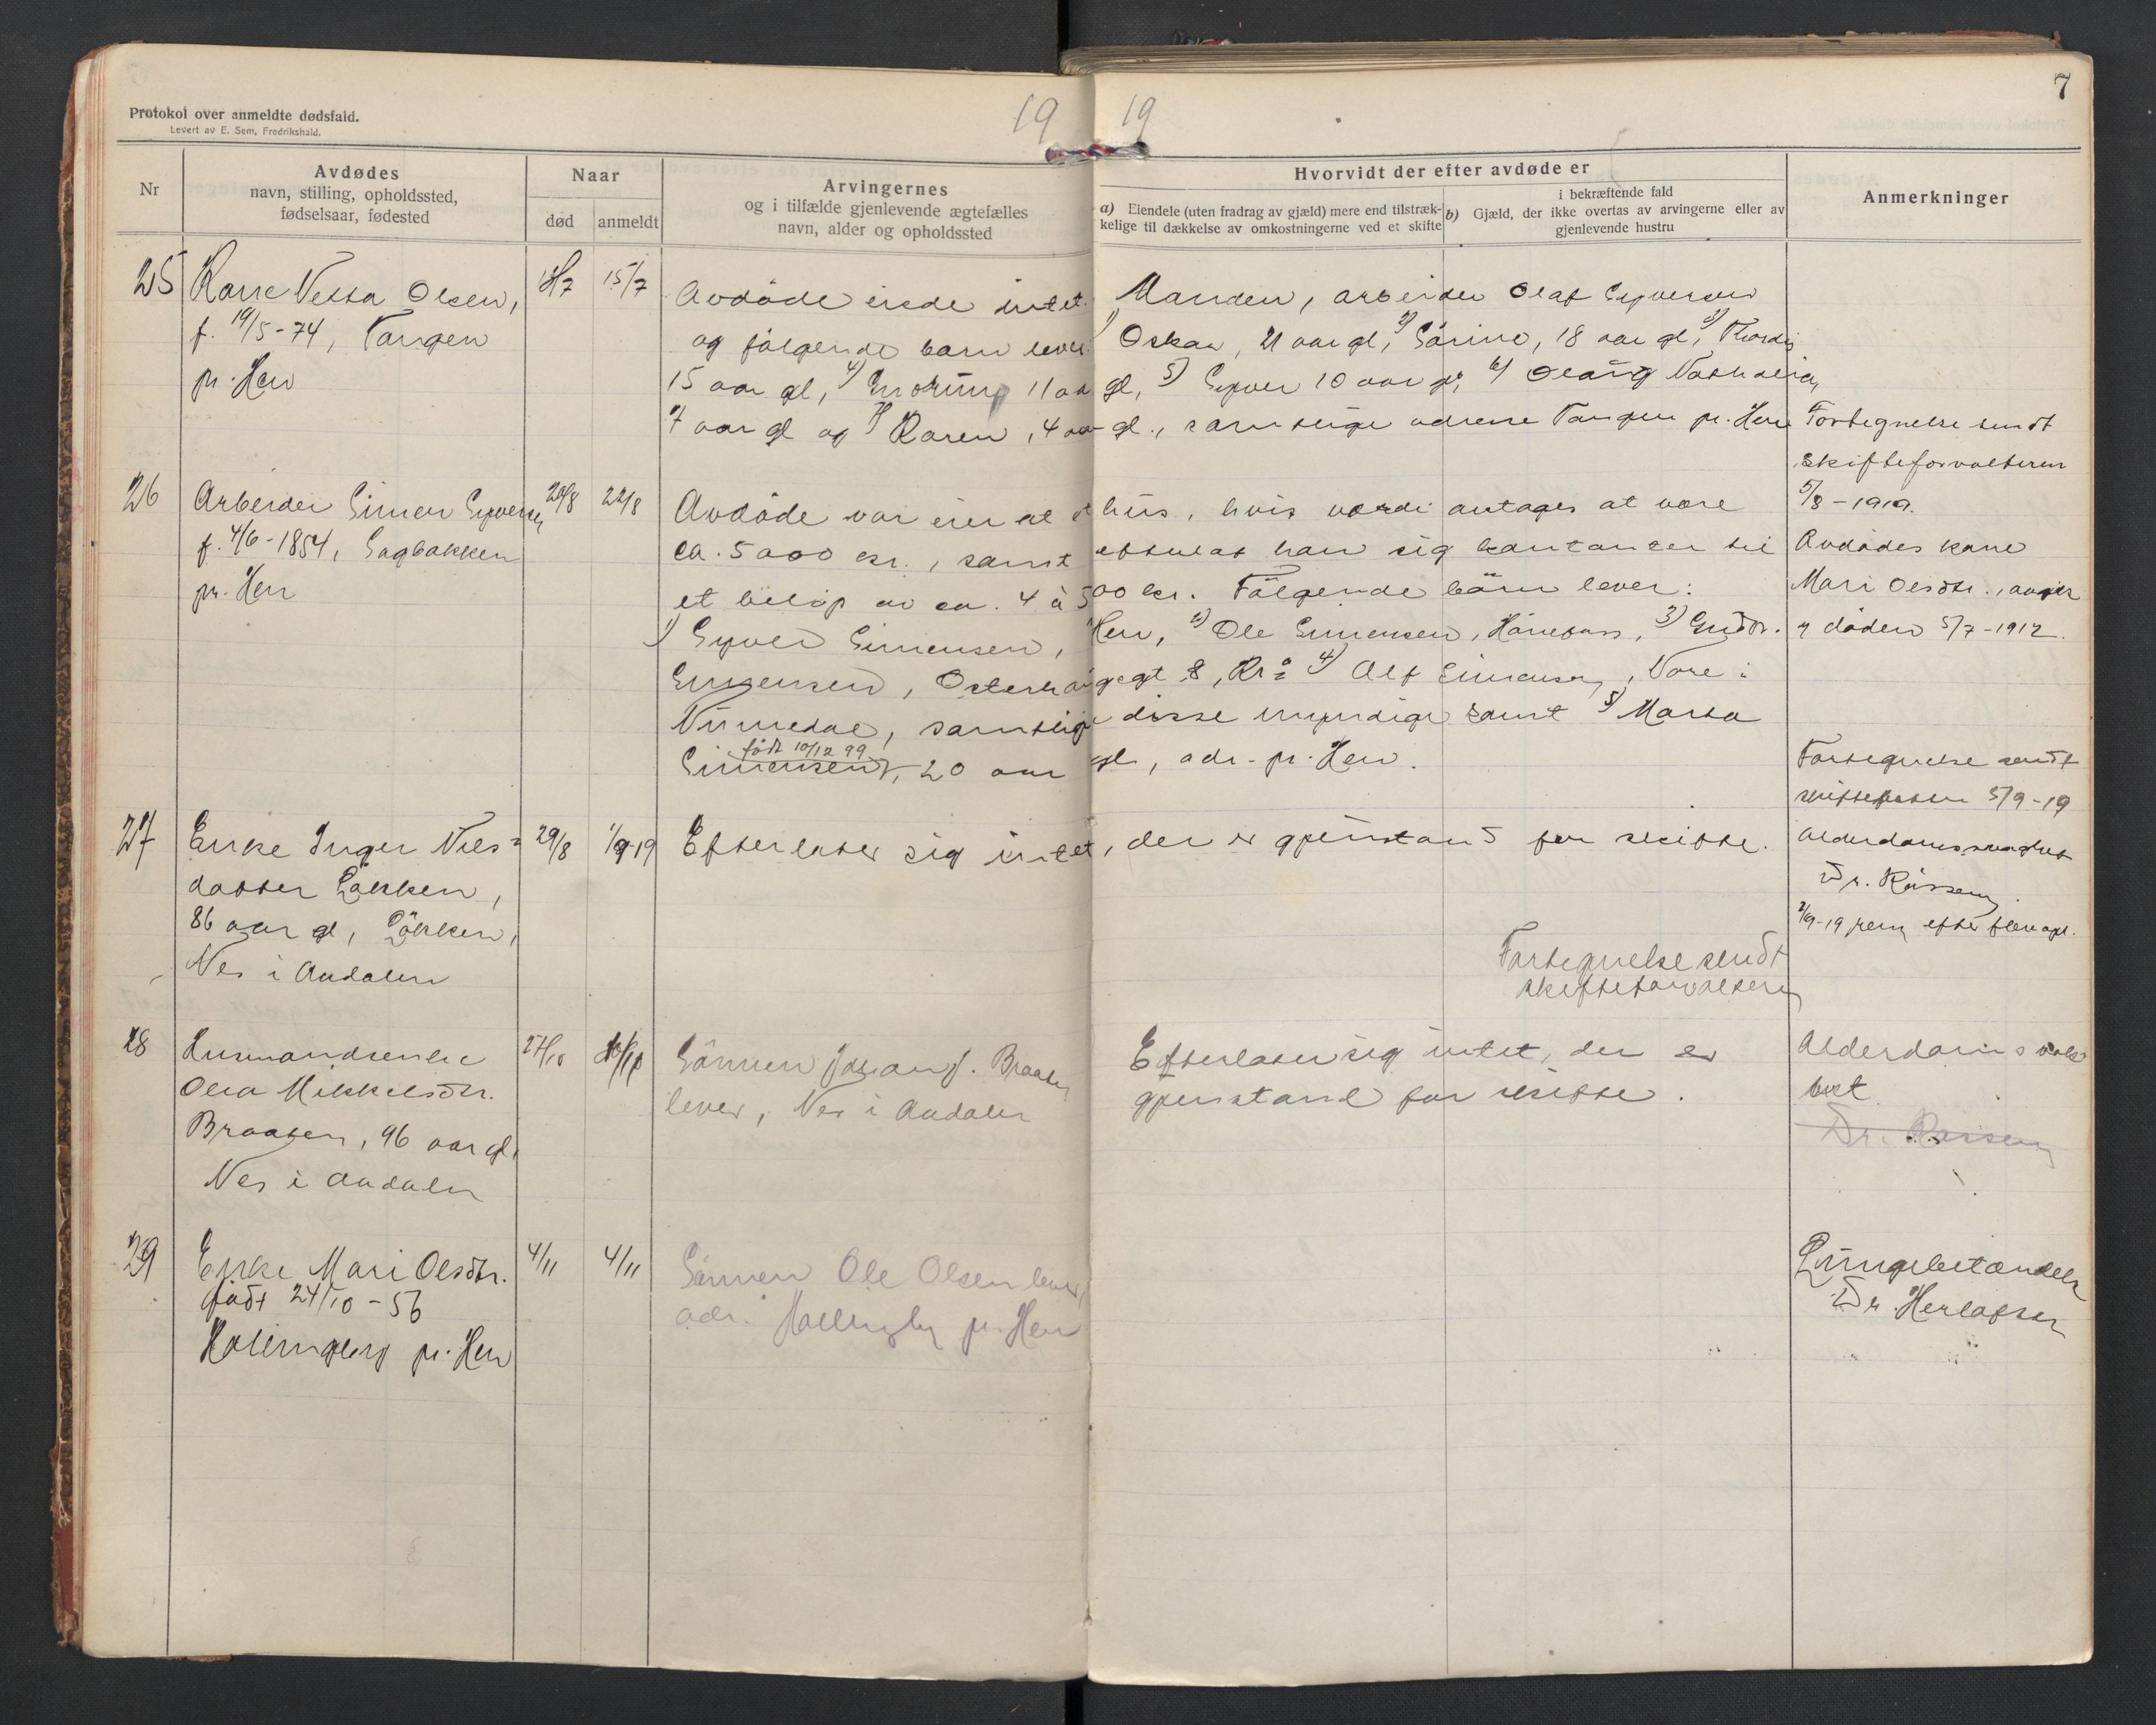 Protokol over anmeldte dødsfald.
Levert av E. Sem, Fredrikshald.
19 19
7
Nr
Avdødes
navn, stilling, opholdssted,
fødselsaar, fødested
Naar
død anmeldt
Arvingernes
og i tilfælde gjenlevende ægtefælles
navn, alder og opholdssted
Hvorvidt der efter avdøde er
a) Eiendele (uten fradrag av gjæld) mere end tilstræk-
kelige til dækkelse av omkostningerne ved et skifte
i bekræftende fald
b) Gjæld, der ikke overtas av arvingerne eller av
gjenlevende hustru
Anmerkninger
25 Kone Olsen,
f. 19/5-74, Tangen
pr. Hen
15/7
Avdöde eiede intet. Manden, arbeider Olaf Syversen
og fölgende barn lever: 1) Oskar, 21 aar gl, 2) 18 aar gl, 3) Thordis
15 aar gl, 4) 11 aar gl, 5) Syver 10 aar gl, 6)
7 aar gl og 7) Karen, 4 aar gl., samtlige adresse Tangen pr. Hen
Fortegnelse sendt
skifteforvalteren
5/8-1919.
26 Arbeider Simen Syversen,
f. 4/6-1854, Sagbakken
pr. Hen
20/8 22/8
Avdöde var eier af et hus, hvis verdi antages at være
ca. 5000 kr., samt efterlot han sig kontanter til
et belöp av ca. 4 à 500 kr. Fölgende börn lever:
1) Syver Simensen, Hen, 2) Ole Simensen, Hönefoss, 3)
Simensen, 8, Kr.a 4) Alf Simensen, Nore i
Numedal, samtlige disse myndige samt 5) Marta
født 10/12 99
Simensen, 20 aar gl, adr. pr. Hen.
Avdödes kone
Mari Olsdtr.,
döden 5/7-1912.
Fortegnelse sendt
5/9-19
27 Enke Inger Nils-
datter Lökken,
86 aar gl, Lökken,
Nes i Aadalen
29/8 1/9-19
Efterlater sig intet, der er gjenstand for skifte.
Alderdomssvaghet
Dr.
Fortegnelse sendt
skifteforvalteren
28 Husmandsenke
Mikkelsdtr.
Braaten, 96 aar gl,
Nes i Aadalen
27/10
Sönnen Johan J. Braaten
lever, Nes i Aadalen
Efterlater sig intet, der er
gjenstand for skifte.
Dr.
29 Enke Mari Olsdtr.
födt 24/10-56
Hallingby pr. Hen
4/11 4/11
Sönnen Ole Olsen lever,
adr. Hallingby pr. Hen
Lungebetændelse
Dr. Herlofsen